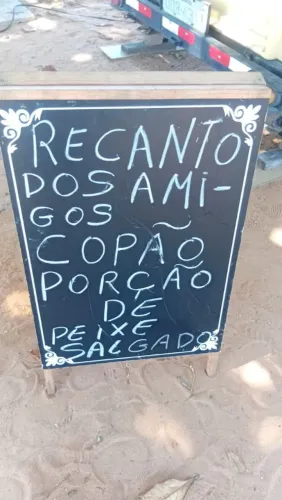 RECANTO
DOS AMI-
GOS
COPÃO
PORÇÃO
DE
PEIXE
SALGADO